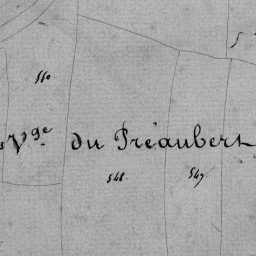 550
Vge du Préaubert
548
547